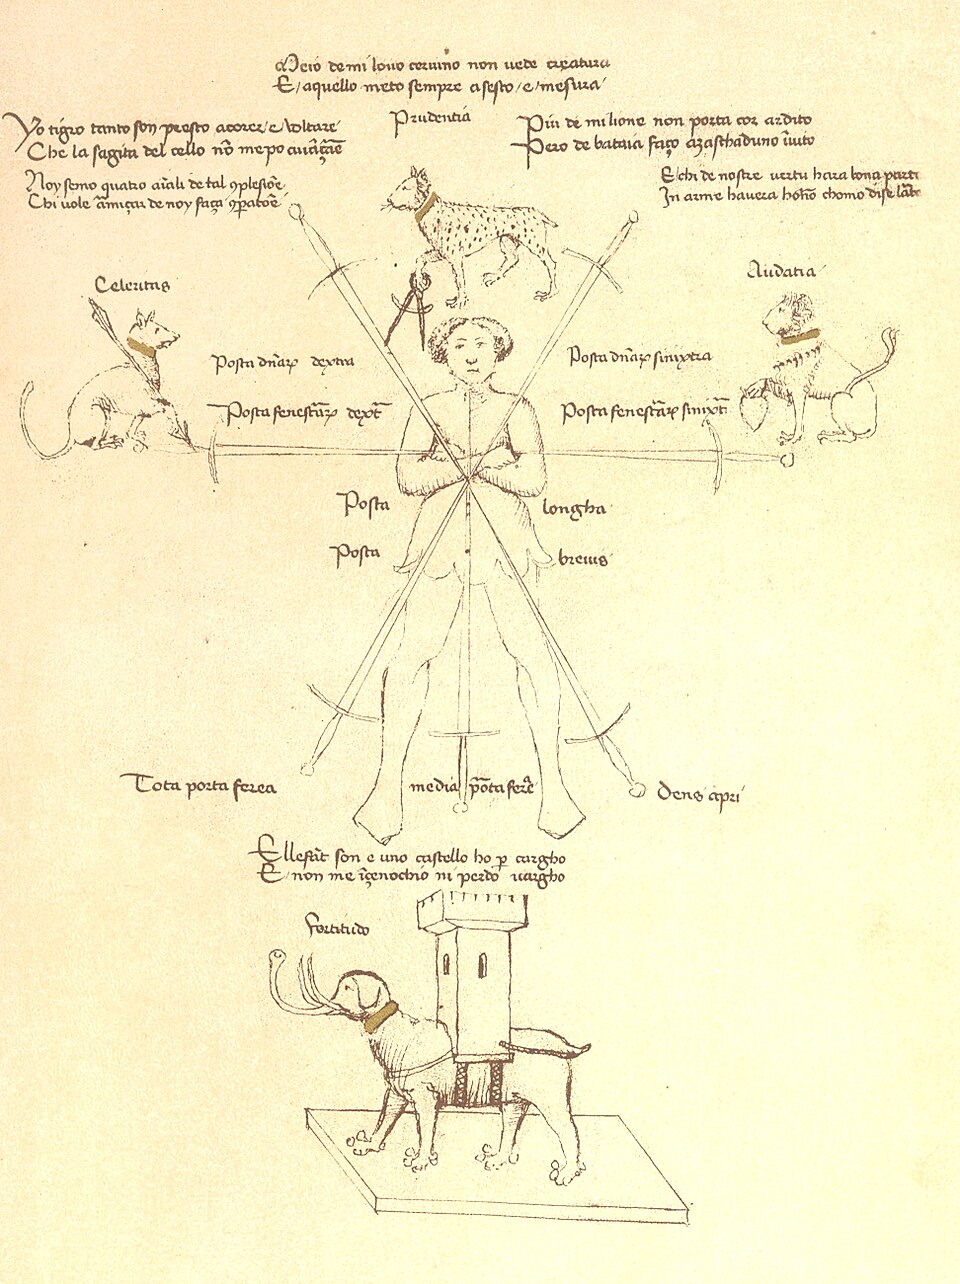 Meio de mi lovo cervino non vede creatura
E aquello meto sempre a sesto e mesura
Prudentia
Yo tigro tanto son presto a corer e voltare
Che la sagita del cello nō me poria
Noy semo quatro aīali de tal cōplesiōe
Chi vole de noy faça cōparatōe
Più de mi lione non porta cor ardito
Però de bataia faço a zaschaduno īvito
E chi de nostre vertù harà bona parte
In arme haverà honō chomo dise
Celeritas
Audatia
Posta dextra
Posta sinixtra
Posta dext̄
Posta sinixt̄
Posta longha
Posta brevis
Tota porta ferea
media pōta ferē
Dens apri
Ellefāt son e uno castello ho p cargho
E non me īçenochio ni perdo vargho
Fortitudo